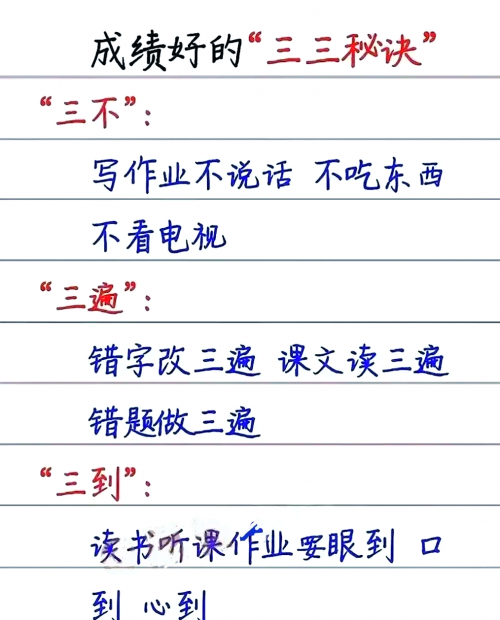 成绩好的“三三秘诀”
“三不”：
写作业不说话 不吃东西
不看电视
“三遍”：
错字改三遍 课文读三遍
错题做三遍
“三到”：
读书听课作业要眼到 口
到 心到